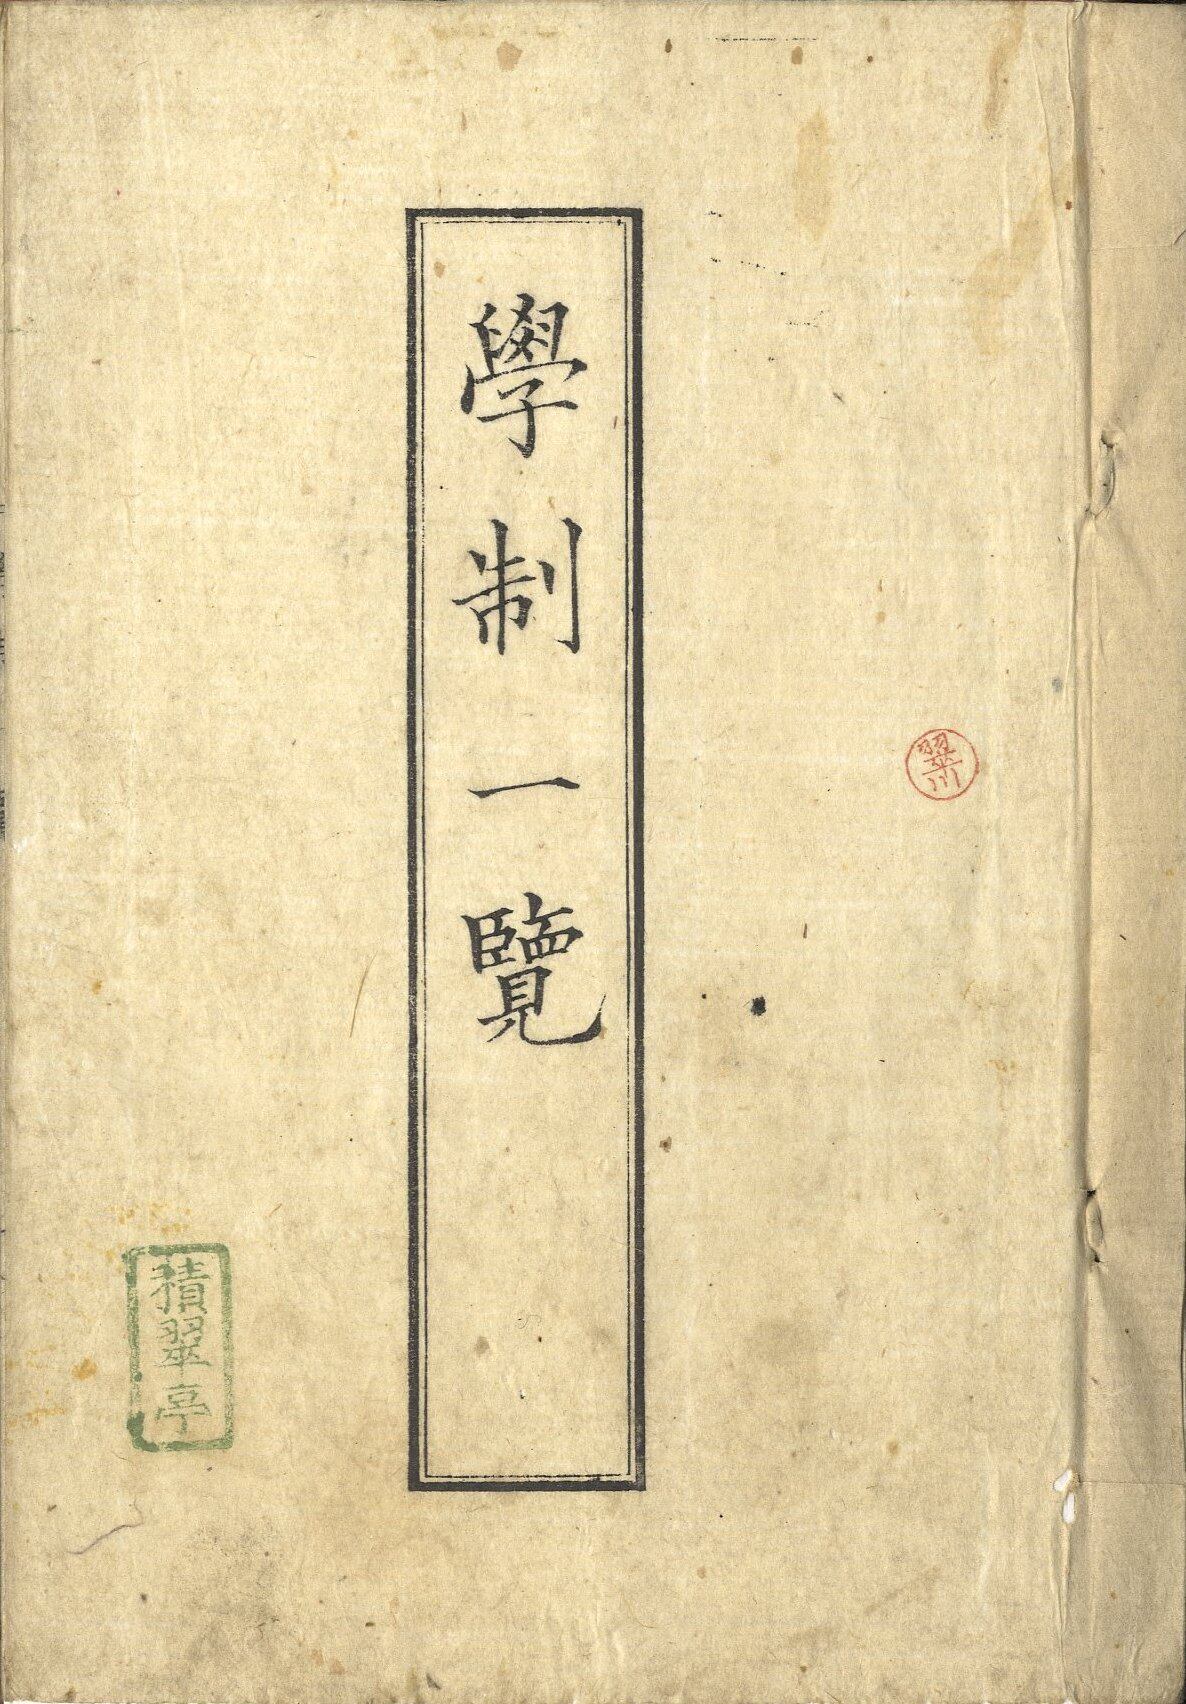 翠川
學制一覽
積翠亭